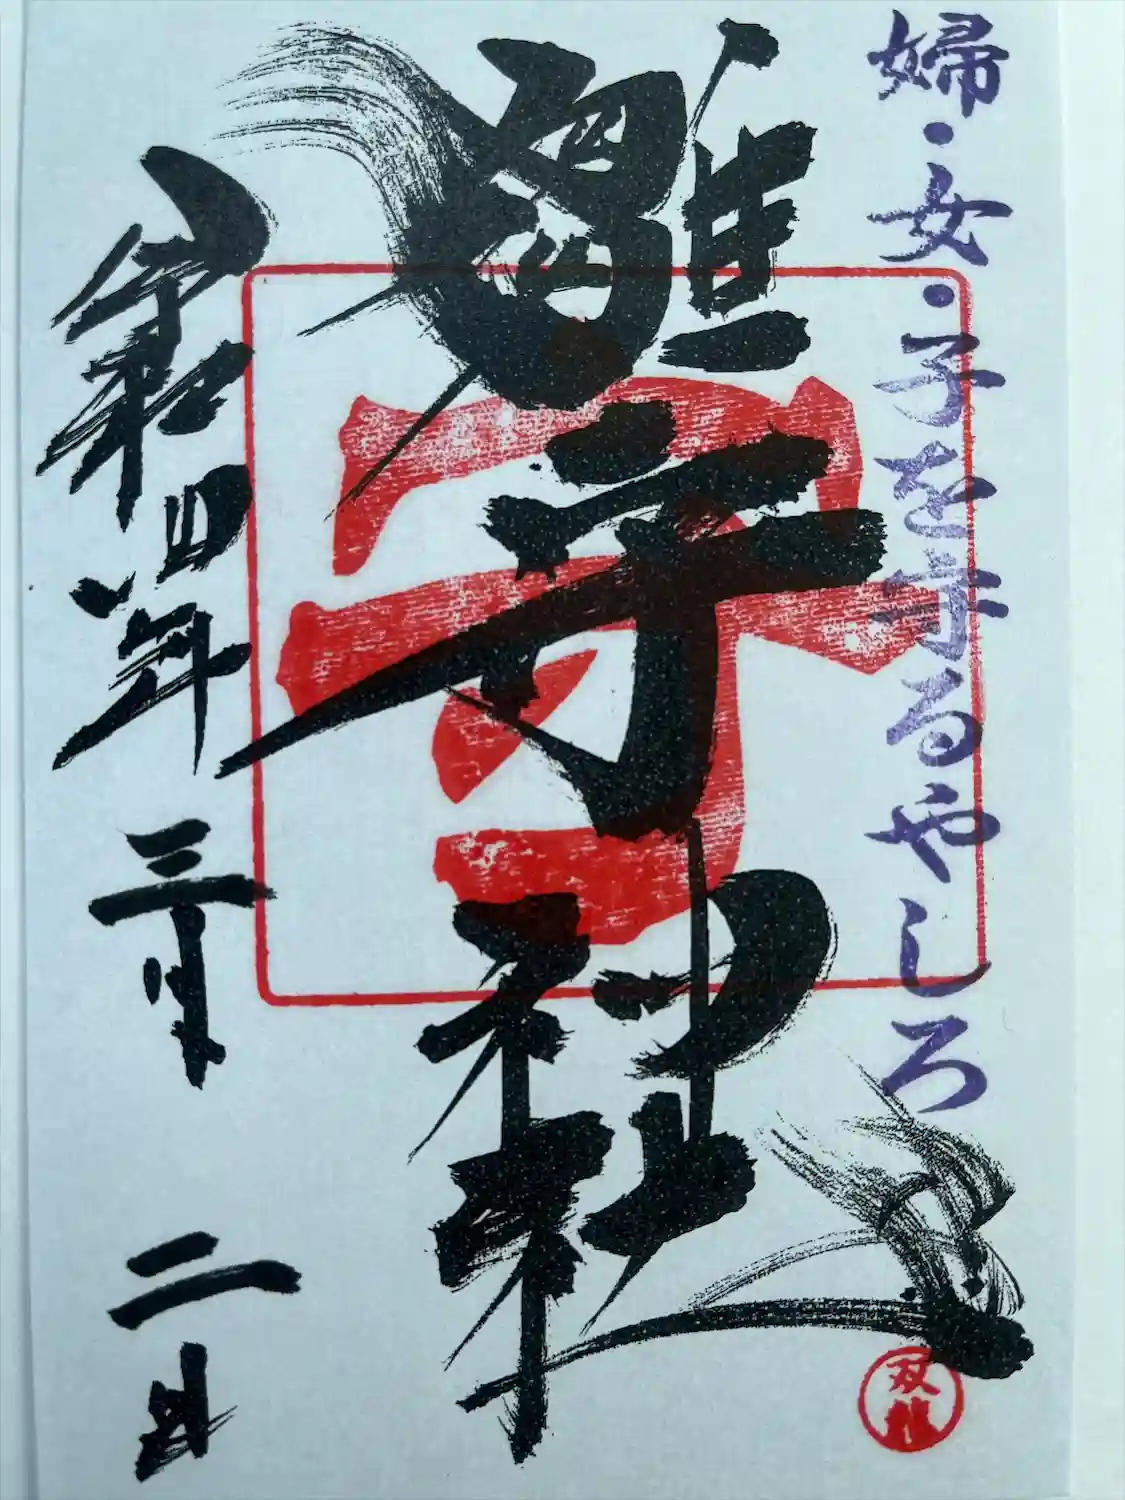 婦・女・子を守るやしろ
雛守神社
守
令和四年 三月 二日
双龍